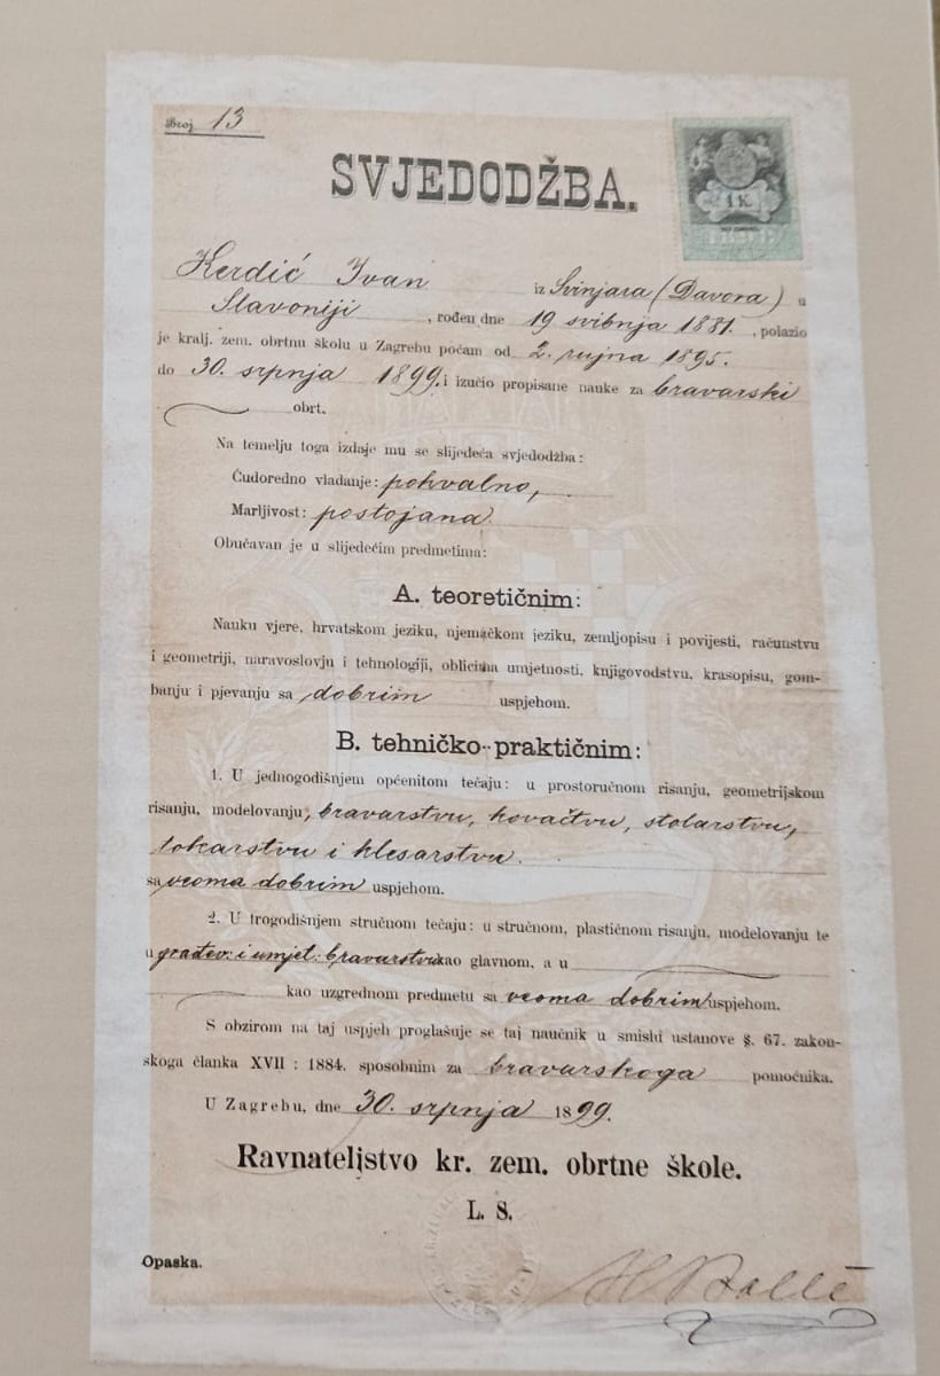 Broj 13
1 K.
SVJEDODŽBA.
Kerdić Ivan iz Svinjara (Davora) u
Slavoniji, rođen dne 19 svibnja 1881., polazio
je kralj. zem. obrtnu školu u Zagrebu počam od 2. rujna 1895.
do 30. srpnja 1899. i izučio propisane nauke za bravarski
obrt.
Na temelju toga izdaje mu se slijedeća svjedodžba:
Ćudoredno vladanje: pohvalno,
Marljivost: postojana.
Obučavan je u slijedećim predmetima:
A. teoretičnim:
Nauku vjere, hrvatskom jeziku, njemačkom jeziku, zemljopisu i povijesti, računstvu
i geometriji, naravoslovju i tehnologiji, oblicima umjetnosti, knjigovodstvu, krasopisu, gom-
banju i pjevanju sa dobrim uspjehom.
B. tehničko-praktičnim:
1. U jednogodišnjem općenitom tečaju: u prostoručnom risanju, geometrijskom
risanju, modelovanju, bravarstvu, kovačtvu, stolarstvu,
tokarstvu i klesarstvu.
sa veoma dobrim uspjehom.
2. U trogodišnjem stručnom tečaju: u stručnom, plastičnom risanju, modelovanju te
u građev: i umjet: bravarstvu kao glavnom, a u
kao uzgrednom predmetu sa veoma dobrim uspjehom.
S obzirom na taj uspjeh proglašuje se taj naučnik u smislu ustanove §. 67. zakon-
skoga članka XVII : 1884. sposobnim za bravarskoga pomoćnika.
U Zagrebu, dne 30. srpnja 1899.
Ravnateljstvo kr. zem. obrtne škole.
L. S.
Opaska.
H Bollé